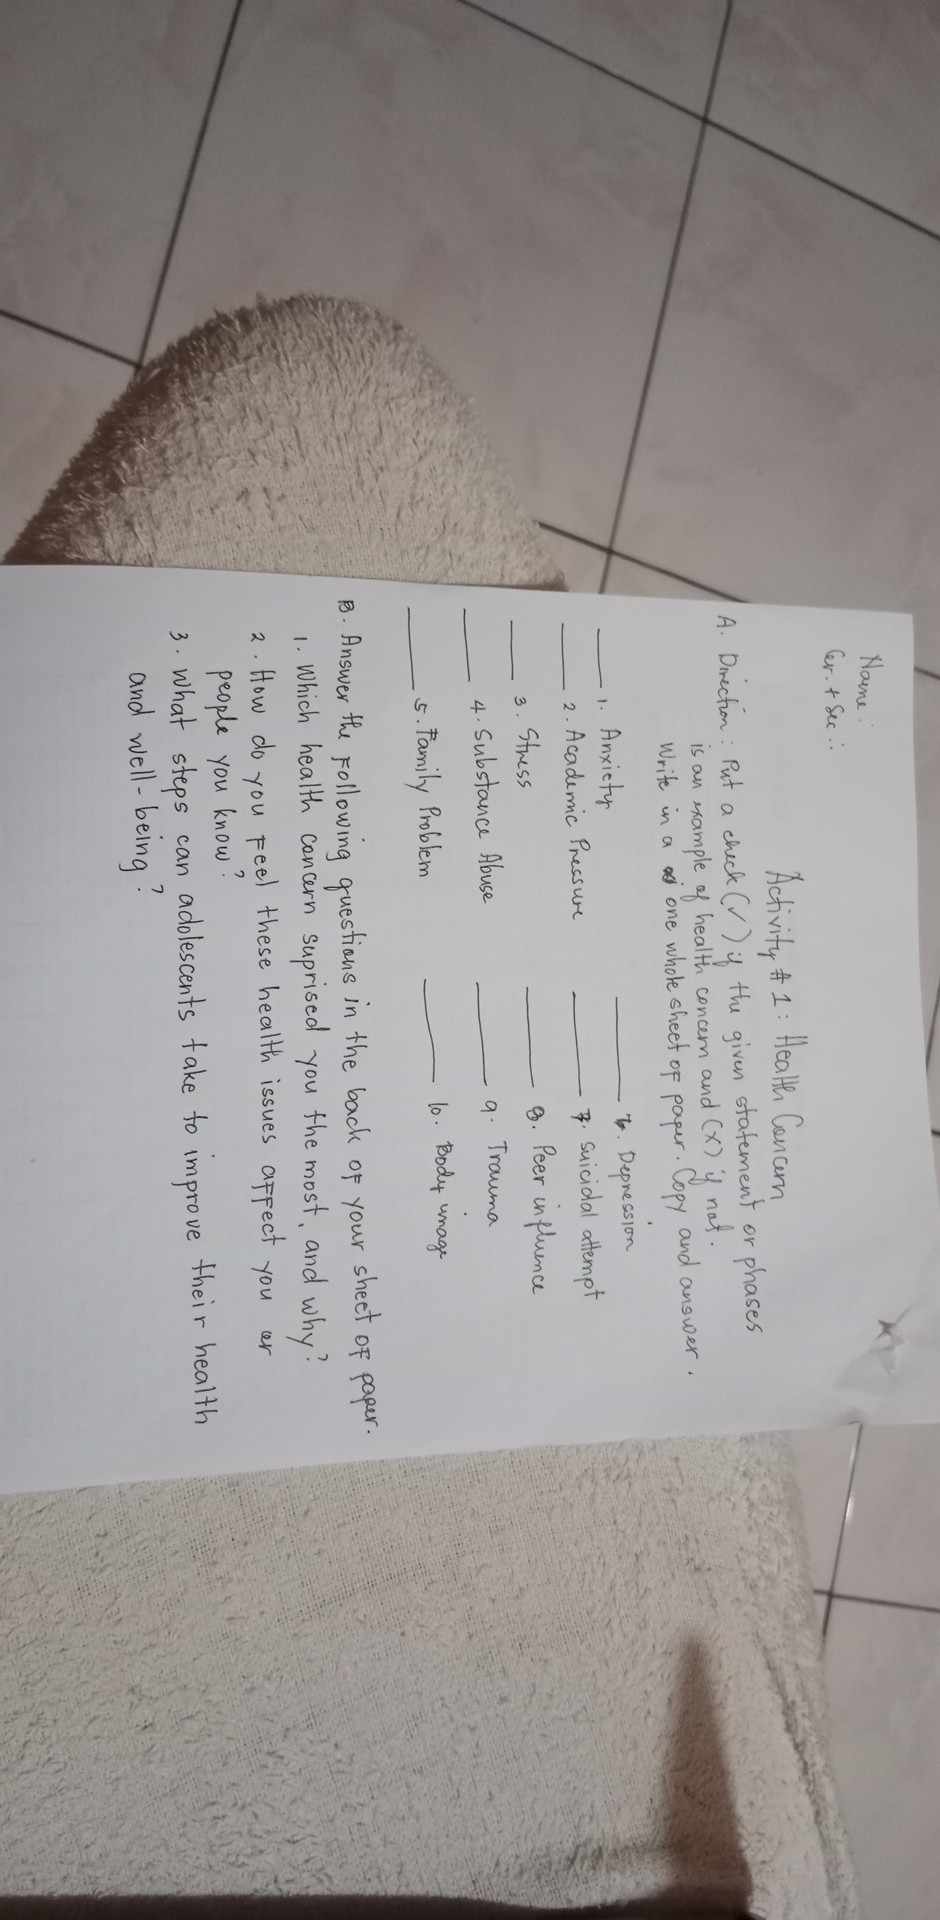 Name :
Gr. + Sec. :
Activity # 1 : Health Concern
A. Direction : Put a check (✓) if the given statement or phases
is an example of health concern and (x) if not.
Write in a one whole sheet of paper. Copy and answer.
____ 1. Anxiety
____ 2. Academic Pressure
____ 3. Stress
____ 4. Substance Abuse
____ 5. Family Problem
____ 6. Depression
____ 7. Suicidal attempt
____ 8. Peer influence
____ 9. Trauma
____ 10. Body image
B. Answer the following questions in the back of your sheet of paper.
1. Which health concern suprised you the most, and why?
2. How do you feel these health issues affect you or
people you know?
3. What steps can adolescents take to improve their health
and well-being?